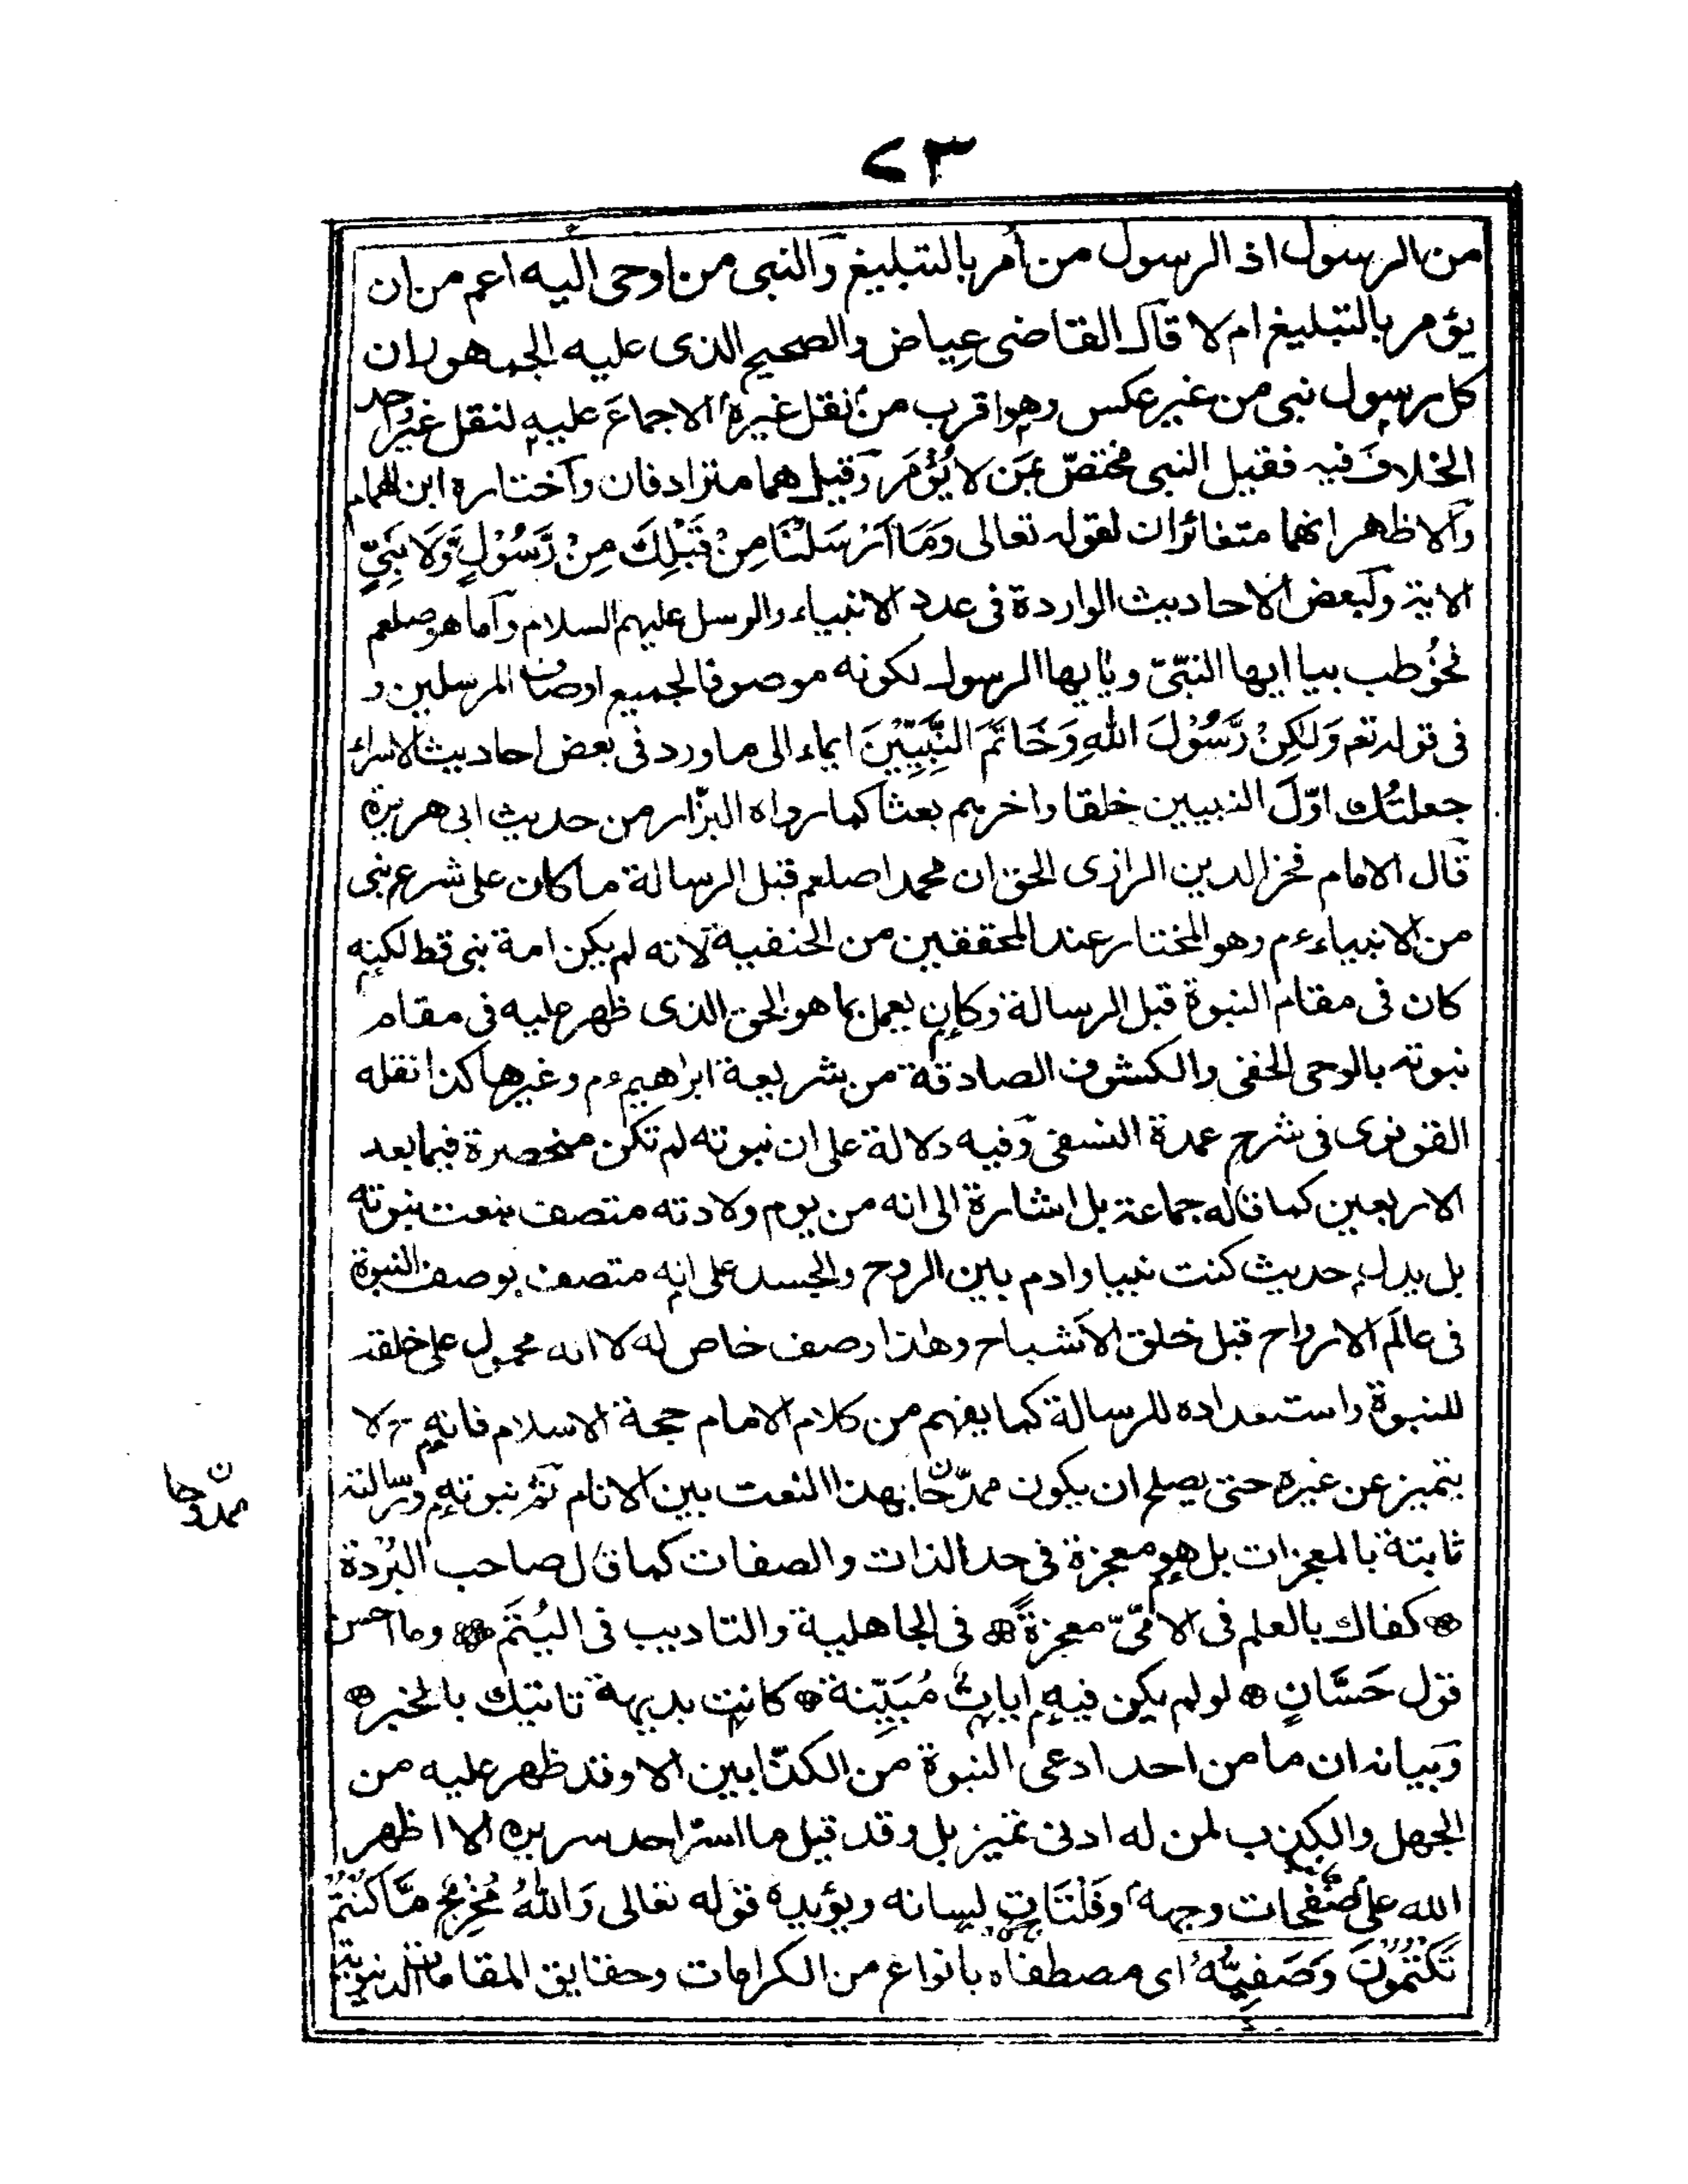 ٧٣
من الرسول اذ الرسول من أمر بالتبليغ والنبى من اوحى اليه اعم من ان
يؤمر بالتبليغ ام لا قال القاضى عياض والصحيح الذى عليه الجمهور ان
كل رسول نبى من غير عكس وهو اقرب من نقل غيره الاجماع عليه لنقل غير واحد
الخلاف فيه فقيل النبى مختص بمن لا يُؤْمَر وقيل هما مترادفان واختاره ابن الهمام
والاظهر انهما متغائران لقوله تعالى وَمَا اَرْسَلْنَا مِنْ قَبْلِكَ مِنْ رَّسُوْلٍ وَّلَا نَبِىٍّ
الاية ولبعض الاحاديث الواردة فى عدد الانبياء والرسل عليهم السلام وأما هو صلعم
فخُوطب بيا ايها النّبىّ ويايها الرسول لكونه موصوفا لجميع اوصاف المرسلين و
فى قوله تعم وَلٰكِنْ رَّسُوْلَ اللهِ وَخَاتَمَ النَّبِيِّيْنَ ايماء الى ما ورد فى بعض احاديث الاسراء
جعلتُك اوّلَ النبيين خلقا واخرهم بعثا كما رواه البزّار من حديث ابى هريرة
قال الامام فخر الدين الرازى الحق ان محمدا صلعم قبل الرسالة ما كان على شرع نبى
من الانبياء ءم وهو المختار عند المحققين من الحنفية لانه لم يكن امة نبى قط لكنه
كان فى مقام النبوة قبل الرسالة وكان يعمل بما هو الحق الذى ظهر عليه فى مقام
نبوته بالوحى الخفى والكشوف الصادقة من شريعة ابراهيم ءم وغيرها كذا نقله
القونوى فى شرح عمدة النسفى وفيه دلالة على ان نبوته لم تكن منحصرة فيما بعد
الاربعين كما قاله جماعة بل اشارة الى انه من يوم ولادته متصف بنعت نبوته
بل يدل حديث كنت نبيا وادم بين الروح والجسد على انه متصف بوصف النبوة
فى عالَم الارواح قبل خلق الاشباح وهذا وصف خاص له لا انه محمول على خلقه
للنبوة واستعداده للرسالة كما يفهم من كلام الامام حجة الاسلام فانه ح لا
يتميز عن غيره حتى يصلح ان يكون ممدّحًا بهذا النعت بين الانام ثم نبوته ورسالته
ن
ممدوحا
ثابتة بالمعجزات بل هو معجزة فى حد الذات والصفات كما قال صاحب البُردة
كفاك بالعلم فى الامّىّ معجزةً فى الجاهلية والتاديب فى اليُتَم وما احسن
قول حَسَّانٍ لو لم يكن فيه اياتٌ مُبَيِّنة كانت بديهة تاتيك بالخبر
وبيانه ان ما من احد ادعى النبوة من الكذّابين الا وقد ظهر عليه من
الجهل والكذب لمن له ادنى تميز بل وقد قيل ما اسرّ احد سريره الا اظهر
الله على صفحات وجهه وفَلَتَاتِ لسانه ويؤيده قوله تعالى وَاللّٰهُ مُخْرِجٌ مَّا كُنْتُمْ
تَكْتُمُوْنَ وَصَفِيُّهٗ اى مصطفاه بانواع من الكرامات وحقايق المقامات الدنيوية